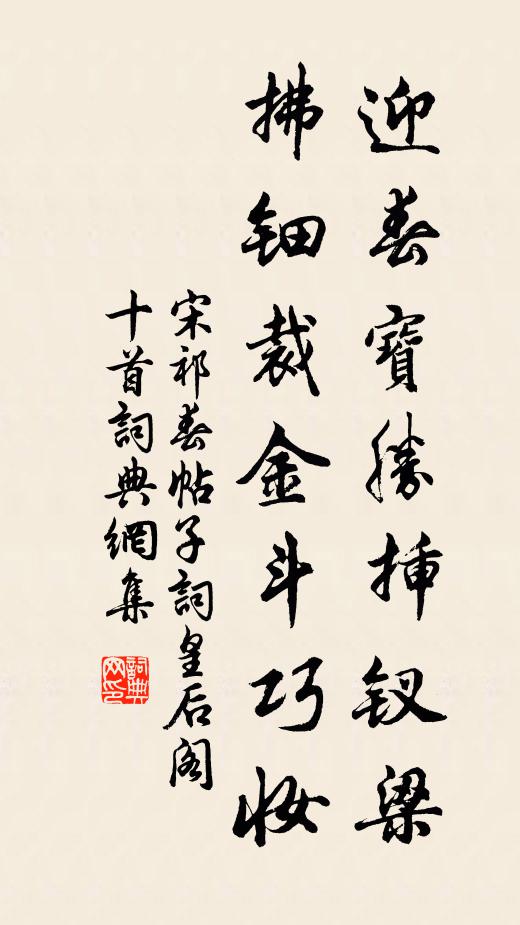 迎春寶勝插釵梁
拂鈿裁金斗巧妝
宋祁春帖子詞皇后阁
十首詞典網集
詞典网印